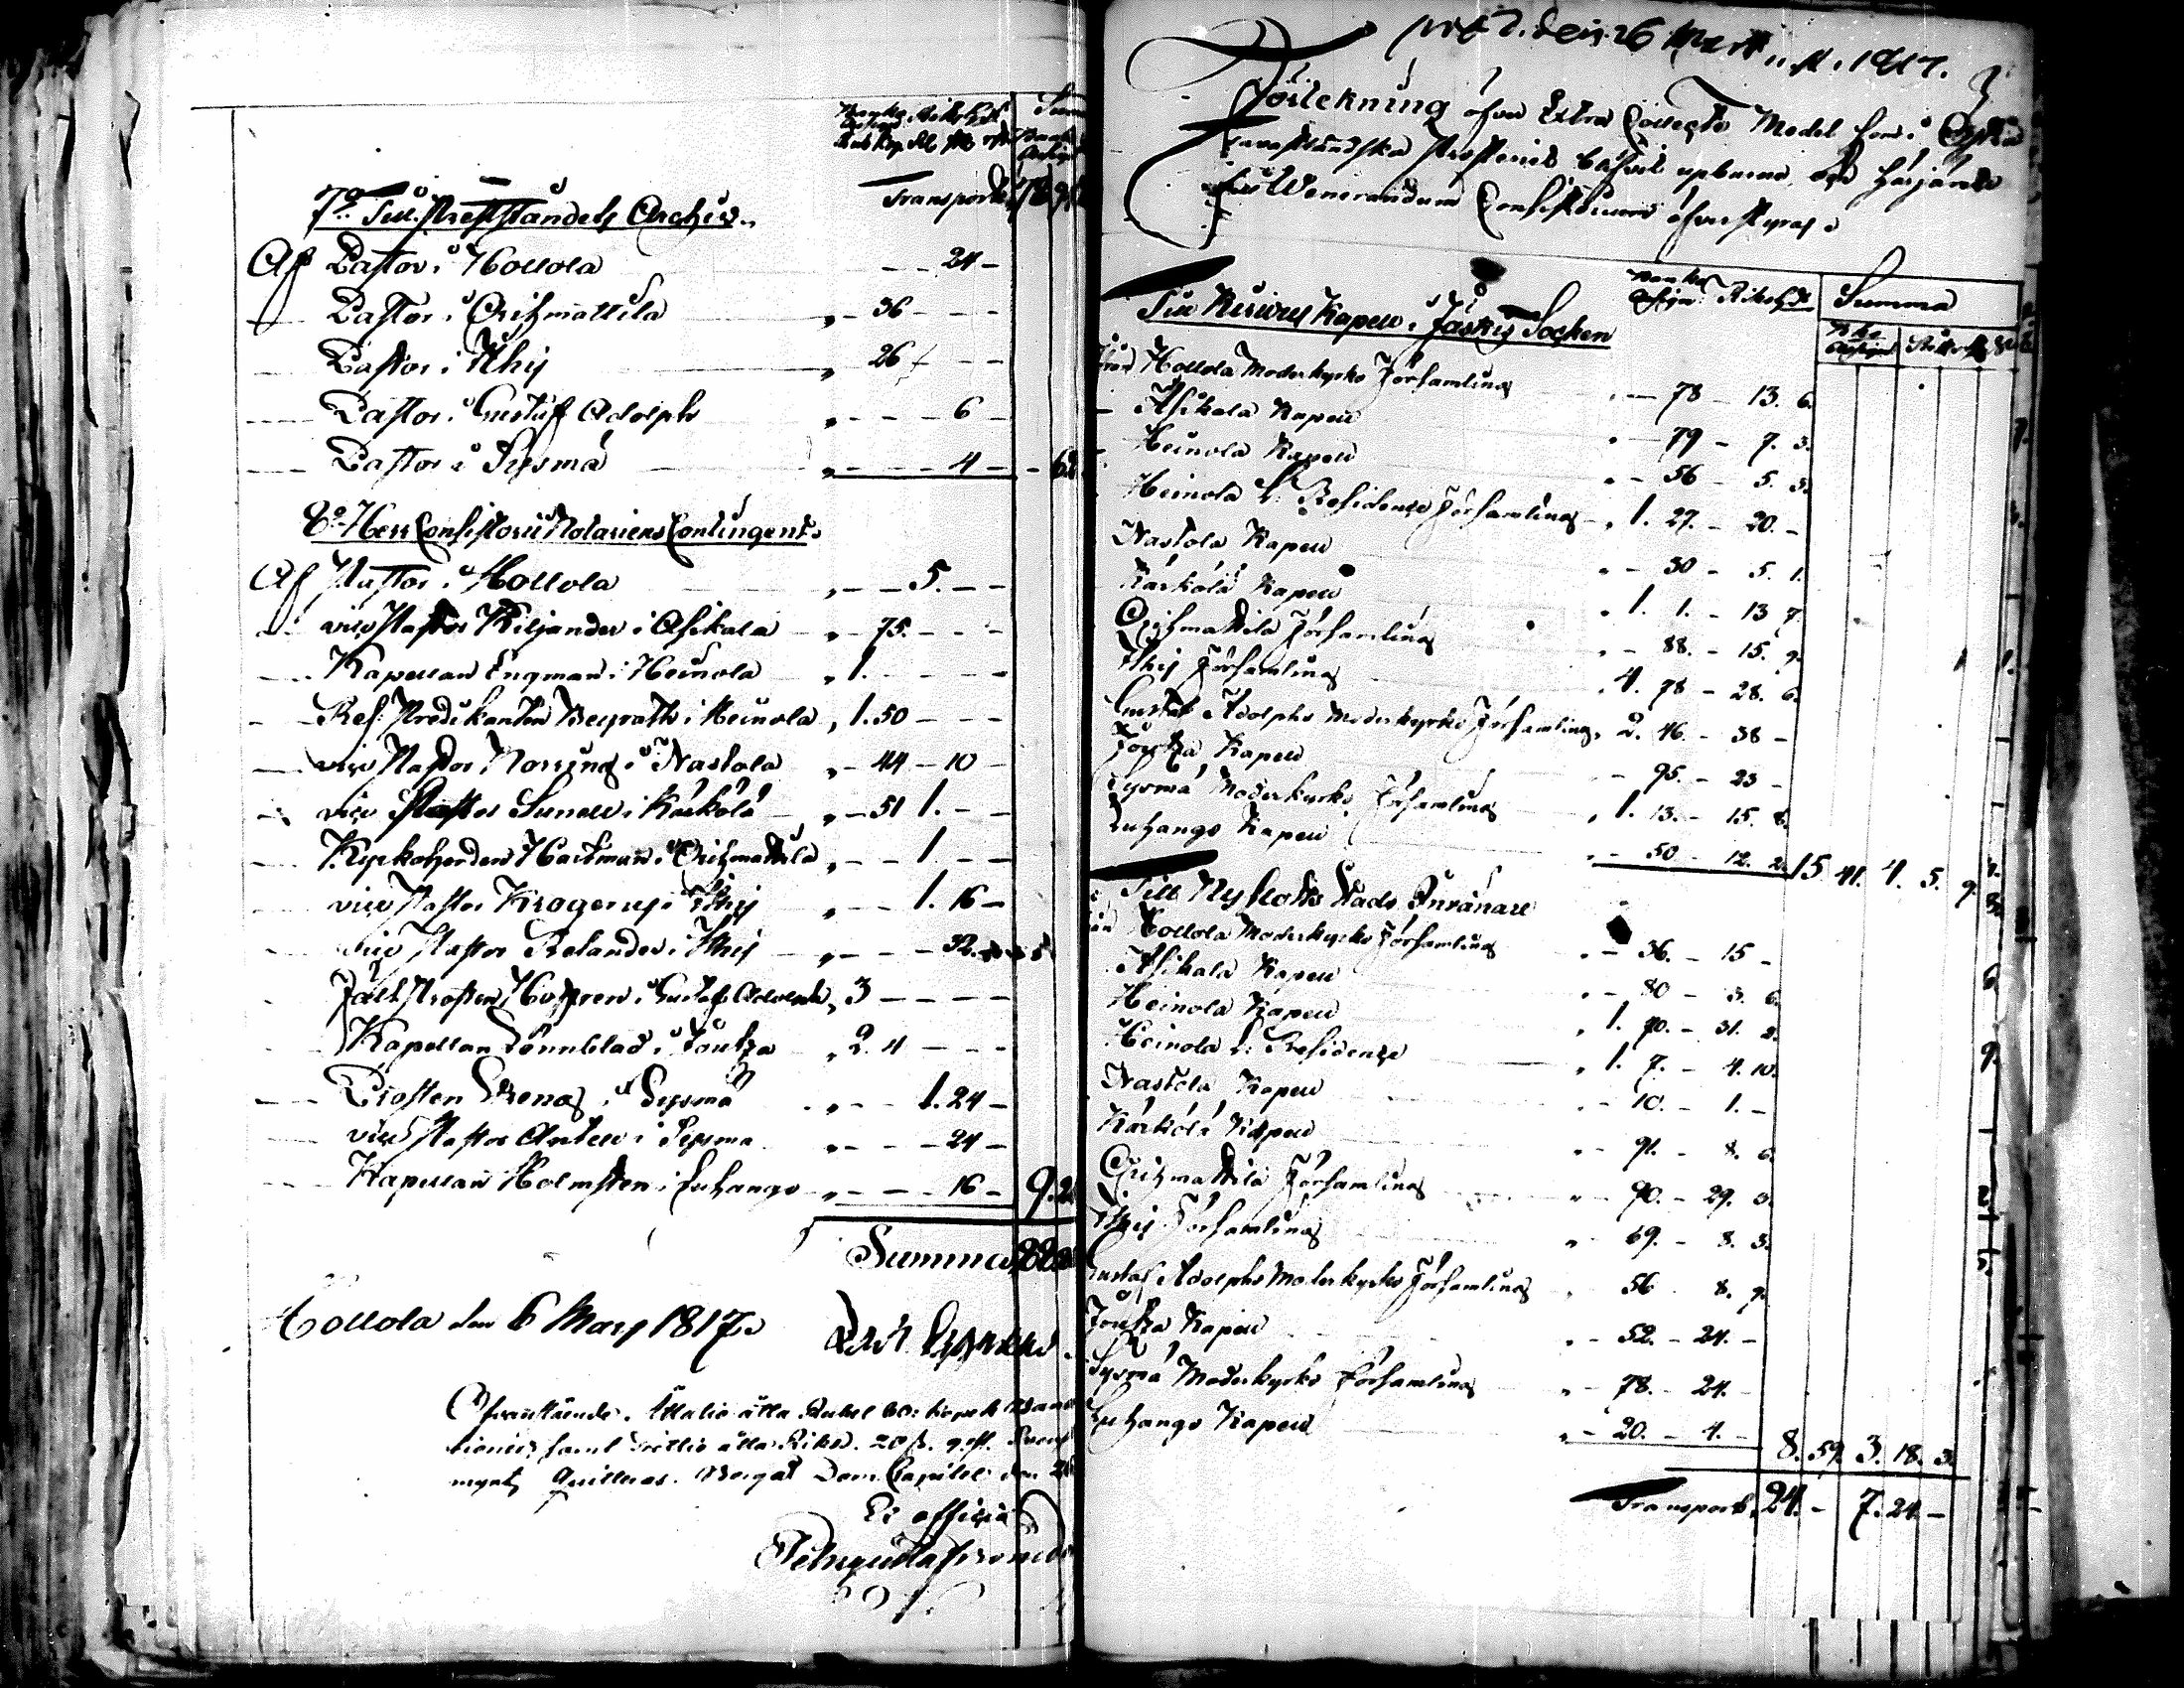 Banko Assign. Riksgäld. Summa
Rub. Kop. Rd. sk. rst. Banko Assign.
Transport
7o Till Preststandets Archiv.
Af Pastor i Hollola - - 24 -
Pastor i Orihmattila " - 36 - - -
Pastor i Ithis " 26 - - -
Pastor i Gustaf Adolph " - - - 6 -
Pastor i Sysmä " - - - 4 - - 62
8o Herr Consistorii Notariens Contingent.
Af Pastor i Hollola " - - 5. - -
vice Pastor Kiljander i Asikala " - 75. - - -
Kapellan Engman i Heinola " 1. - - - -
Res: Predikanten Beyrath i Heinola " 1. 50 - - -
vice Pastor Norring i Nastola " - 44 - 10 -
vice Pastor Sunell i Kärkölä " - 51 1. - -
Kyrkoherden Hartman i Orihmattila " - - 1 - -
vice Pastor Krogerus i Ithis " - - 1. 16 -
vice Pastor Relander i Ithis " - - - 32.
Fält Prosten Hoffren i Gustaf Adolph " 3 - - - -
Kapellan Lönnblad i Joutza " 2. 4 - - -
Prosten i Sysmä " - - 1. 24 -
vice Pastor Antell i Sysmä " - - - 24 -
Kapellan Holmsten i Luhango " - - - 16 - 9.
Summa 88
Hollola den 6 Mars 1817.
Ofvanstående åtta Rubel 60: kopek Banco
samt åtta Riksd. 20 s. 9 rst. Svenskt
mynt, qvitteras. Borgå Dom Capitel den 26
Ex officio
pres. d. 26 Mart. 1817.
3
Förtekning öfver Extra Collecte Medel som i Östra
Tavastländska Prosteriet blifvit upburne, och härjämte
till Venerandum Consistorium öfverstyras.
Banko Assign. Riksgäld. Summa
Bko Assign. Riksg.
Till Kirvus Kapell i Jäskis Socken
Från Hollola Moderkyrko Församling " - 78 - 13. 6.
Asikala Kapell " - 79 - 7. 3.
Heinola Kapell " - 56 - 5. 3.
Heinola L: Residence Församling " 1. 27. - 20. -
Nastola Kapell " - 30 - 5. 1.
Kärkölä Kapell " 1. 1. - 13 7.
Orihmattila Församling " - 88. - 15. 9.
Ithis Församling " 4. 78 - 28. 6.
Gustaf Adolphs Moderkyrko Församling " 2. 46. - 38 -
Joutza Kapell " - 95. - 23 -
Sysmä Moderkyrko Församling " 1. 13. - 15. 8.
Luhango Kapell " - 50 - 12. 2. 15. 41. 4. 5. 9.
Till Nyslotts Stads Invånare
Från Hollola Moderkyrko Församling " - 36. - 15 -
Asikala Kapell " - 80 - 3. 6.
Heinola Kapell " 1. 70. - 31. 2.
Heinola L: Residence " 1. 7. - 4. 10.
Nastola Kapell " - 10. - 1. -
Kärkölä Kapell " - 91. - 8. 6.
Orihmattila Församling " - 90. - 29. 3.
Ithis Församling " - 69. - 8. 3.
Gustaf Adolphs Moderkyrko Församling " 56 - 8. 9.
Joutza Kapell " - 52. - 24. -
Sysmä Moderkyrko Församling " - 78. - 24. -
Luhango Kapell " - 20. - 4. - 8. 59. 3. 18. 3.
Transport. 24. - 7. 24. -